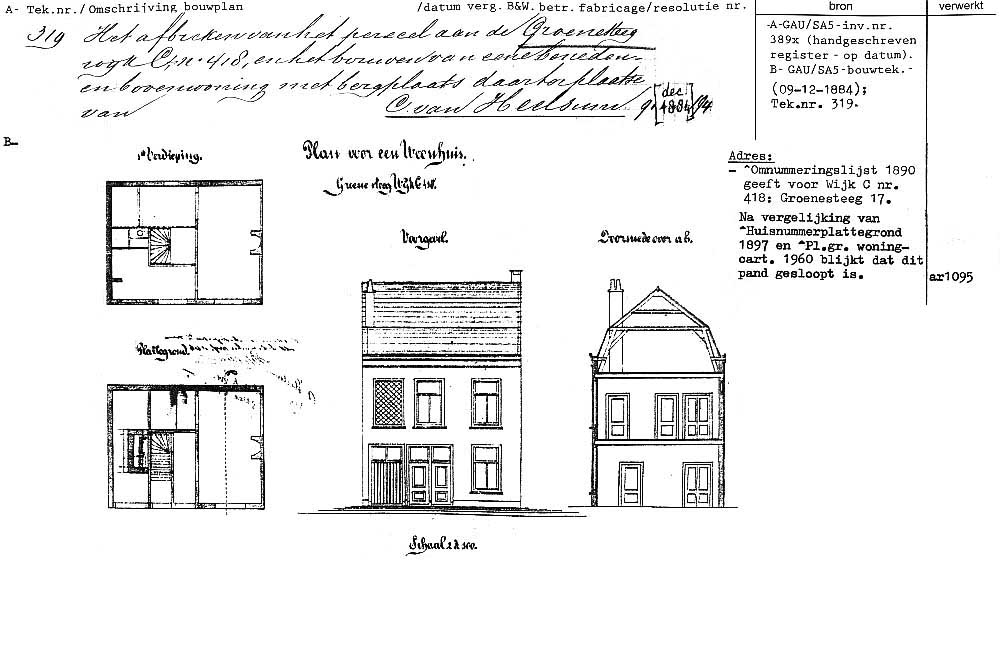 A- Tek.nr./Omschrijving bouwplan
/datum verg. B&W. betr. fabricage/resolutie nr.
bron
verwerkt
319 Het afbreken van het perceel aan de Groenesteeg
wijk C, n. 418, en het bouwen van eene beneden-
en bovenwoning met bergplaats daar ter plaatse
van C. van Heelsum 9 [dec 1884] /84
-A-GAU/SA5-inv.nr.
389x (handgeschreven
register - op datum).
B- GAU/SA5-bouwtek.-
(09-12-1884);
Tek.nr. 319.
B-
1e Verdieping.
Plan voor een Woonhuis.
Groene steeg Wijk C 418.
Adres:
- ^Omnummeringslijst 1890
geeft voor Wijk C nr.
418: Groenesteeg 17.
Na vergelijking van
^Huisnummerplattegrond
1897 en ^Pl.gr. woning-
cart. 1960 blijkt dat dit
pand gesloopt is.
ar1095
Voorgevel.
Doorsnede over a b.
Plattegrond.
Schaal 1 à 100.